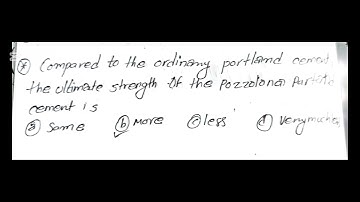 * Compared to the ordinary portland cement
the ultimate strength of the Pozzolona Portland
cement is
(a) Same (b) More (c) less (d) Very much